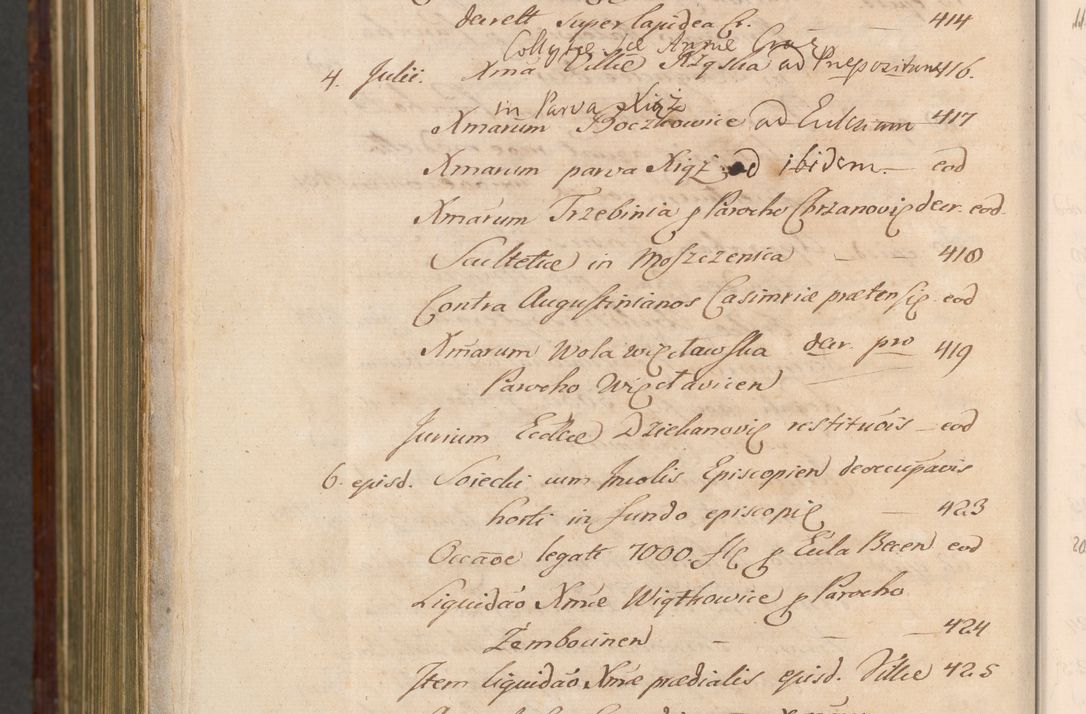 decrett super lapidea Cr. — 414
4. Julii. Xma Villæ Rząska ad Præpozitum 416.
in Parva Xiąż
Xmarum Boczkowice ad 417
Xmarum parva Xiąż ad ibidem. — eod
Xmarum Trzebinia p Parocho Chrzanovię decr. eod.
Scultetiæ in Moszczenica — — 418
Contra Augustinianos Casimriæ prætensię eod
Xmarum Wola więcławska decr. pro 419
Parocho Więcłavicen —
Jurium Eccliæ Dziekanovię restituōis — eod
6. ejusd. Soiecki cum Incolis Episcopien deoccupāōis
horti in fundo episcopię — 423
Occāoe legatt 7000. flę p Eccla Becen eod
Liquidāo Xmæ Wiątkowice p Parocho
Zembocinen — — — 424
Item liquidāo Xmæ prædialis ejusd. Villæ 425